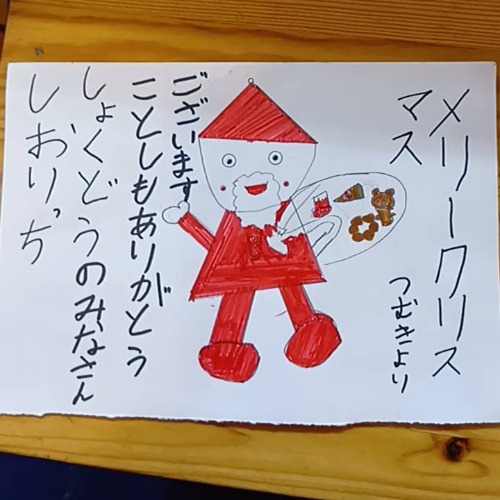 メリークリス
マス
つむきより
しおりっち
しょくどうのみなさん
ことしもありがとう
ございます